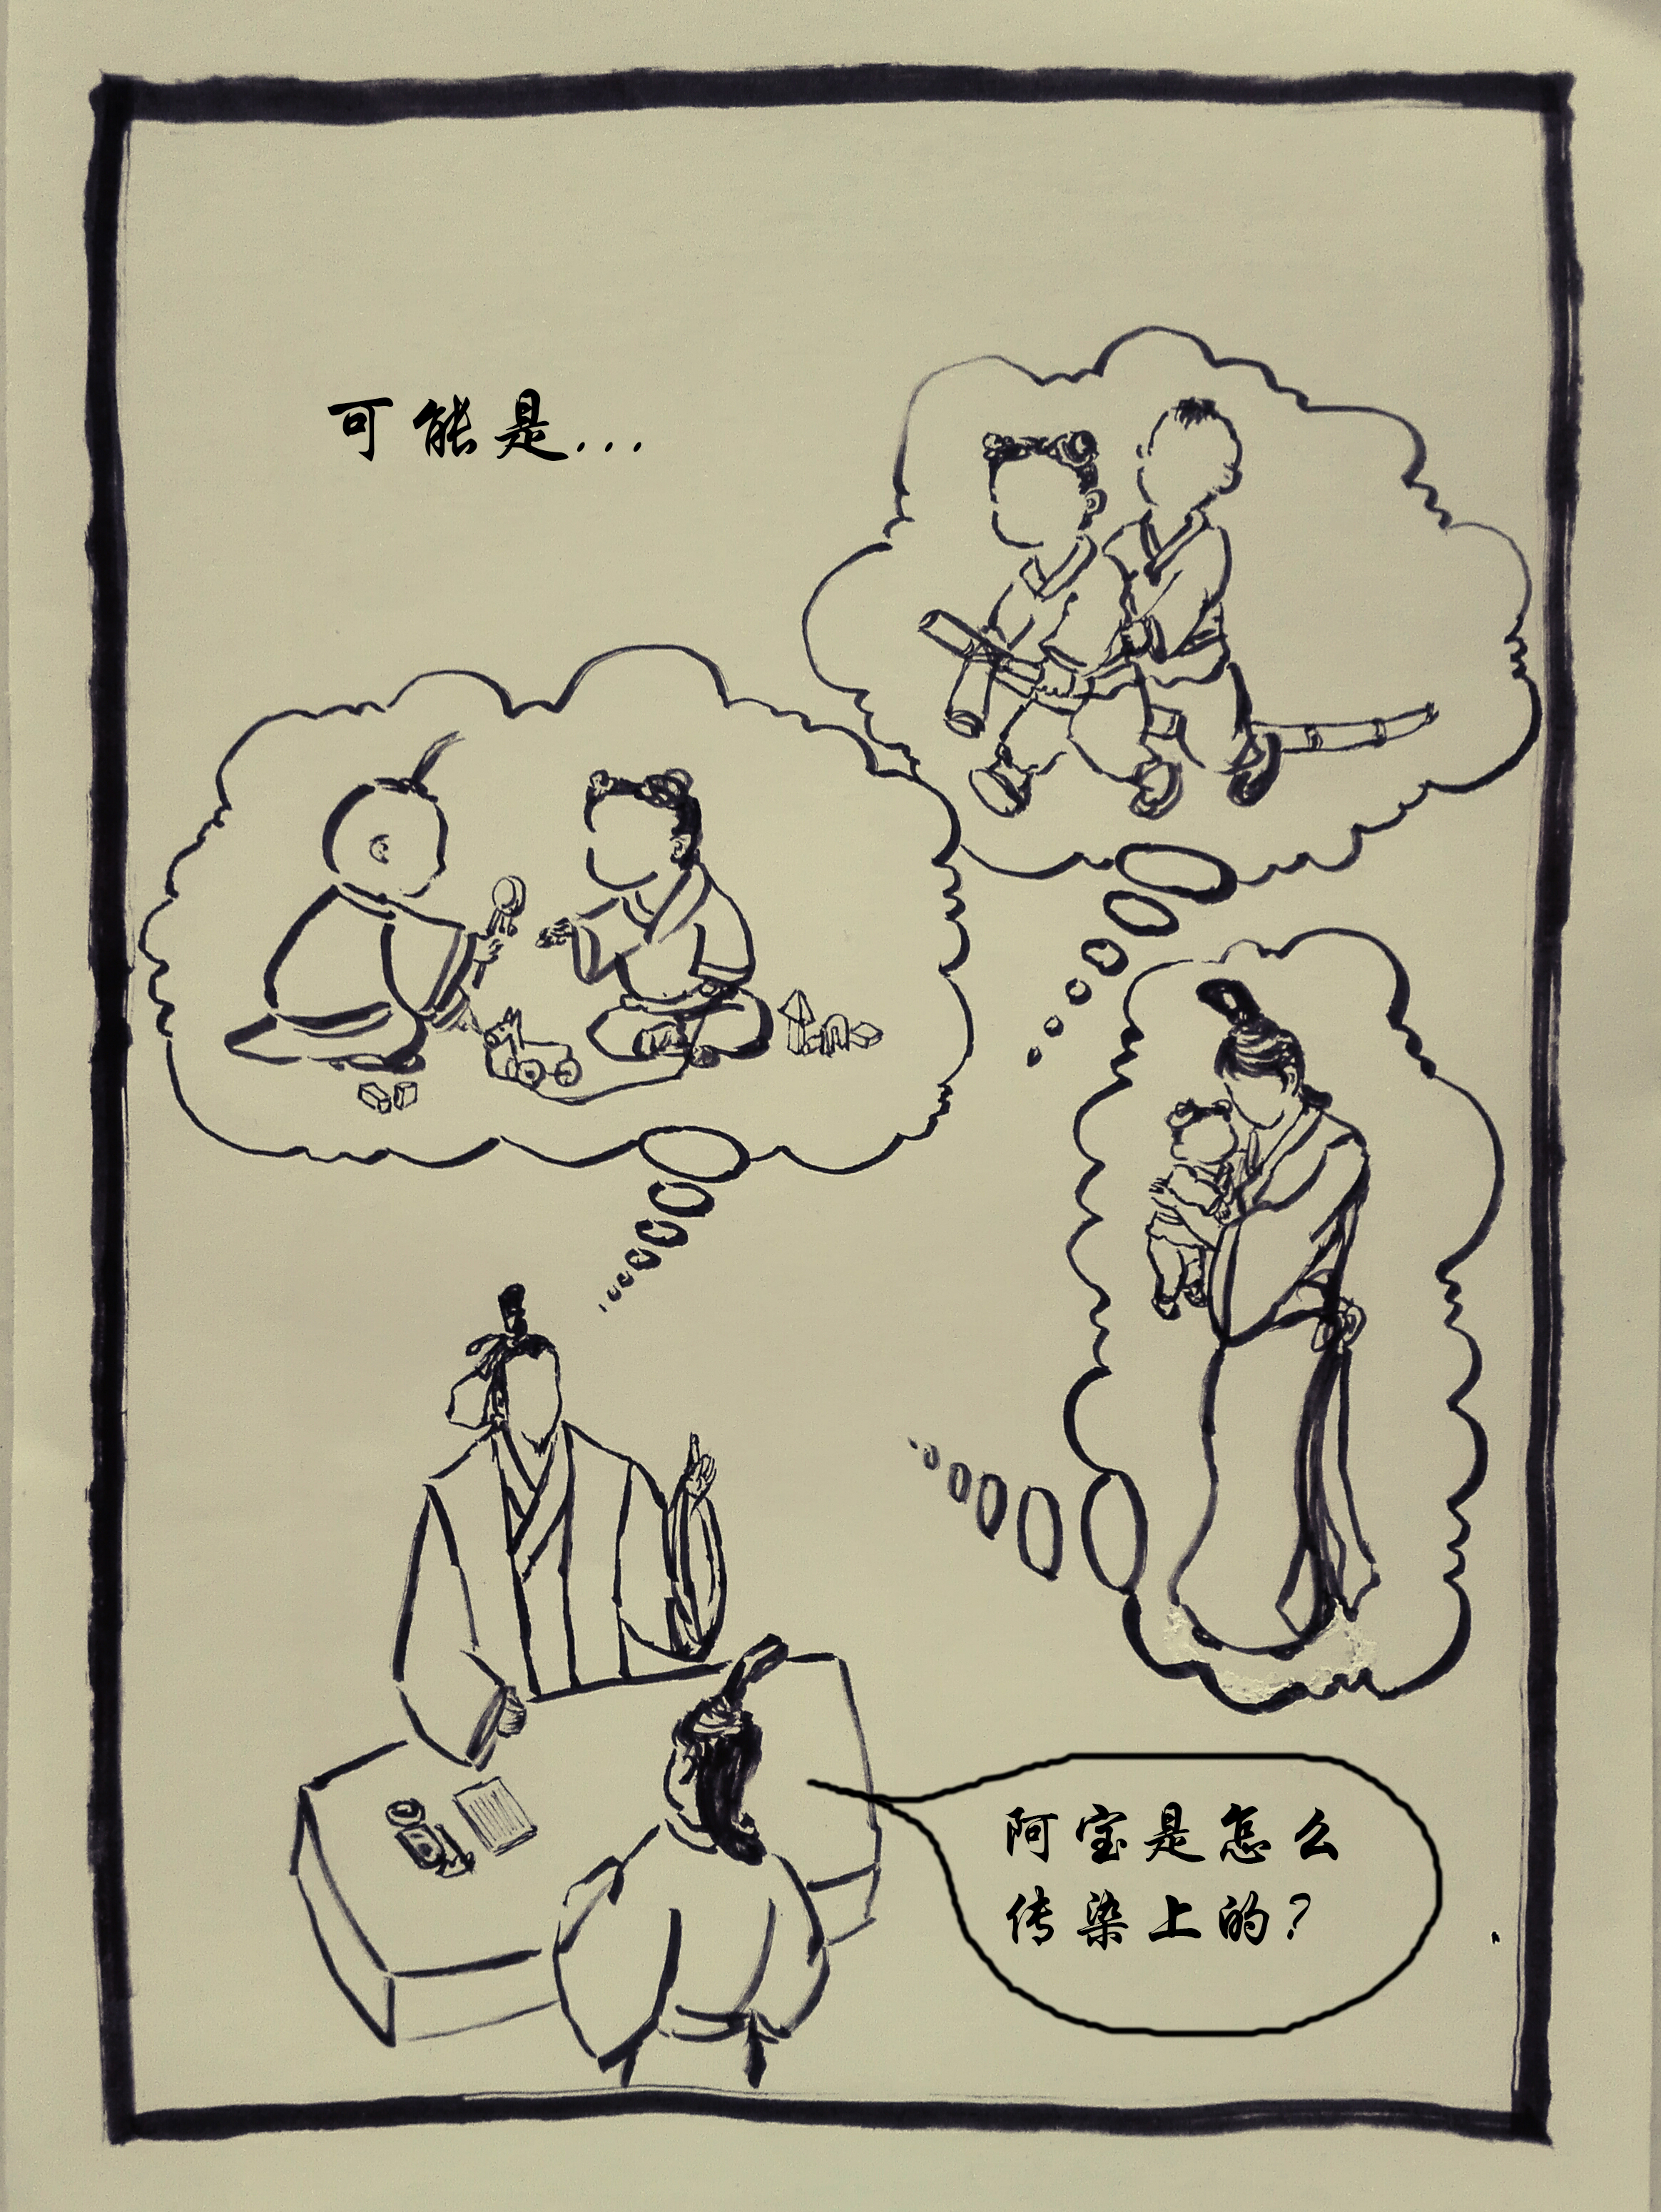 可能是...
阿宝是怎么
传染上的?